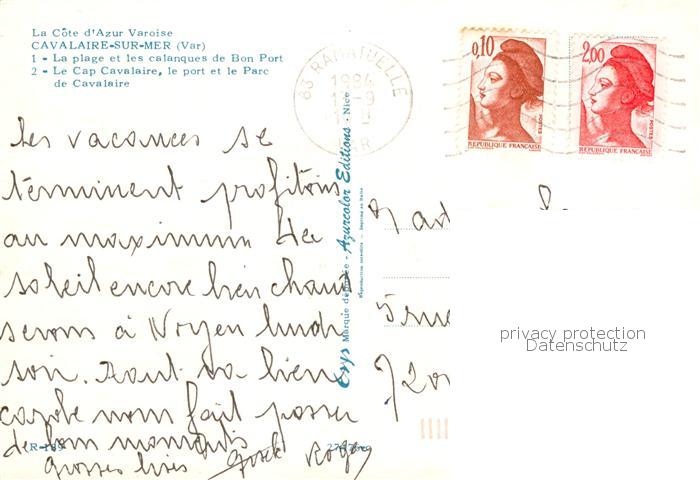 La Côte d'Azur Varoise
CAVALAIRE-SUR-MER (Var)
1 - La plage et les calanques de Bon Port
2 - Le Cap Cavalaire, le port et le Parc
de Cavalaire
83 RAMATUELLE
1984
VAR
0,10
POSTES
REPUBLIQUE FRANÇAISE
2,00
POSTES
REPUBLIQUE FRANÇAISE
Les vacances se
terminent profitons
au maximum du
soleil encore bien chaud
serons à Noyen lundi
soir. Tout va bien
nous fait passer
de bons moments
grosses bises Roger
Erys Marque déposée - Azurcolor Editions - Nice
Reproduction interdite - Imprimé en Italie
privacy protection
Datenschutz